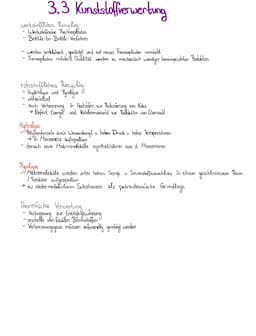 3.3 Kunststoffverwertung
werkstoffliches Recycling
- Werkstoffreine Thermoplasten
- Bottle-to-Bottle-Verfahren
- werden zerkleinert, gereinigt und mit neuen Thermoplasten vermischt
- Thermoplasten minderer Qualität werden zu mechanisch weniger beanspruchten Produkten
rohstoffliches Recycling
- Hydrolyse und Pyrolyse
- unbehandelt
- auch Verbrennung in Hochöfen zur Reduzierung von Koks
→ liefert Energie und Kohlenmonoxid zur Reduktion von Eisenoxid
Hydrolyse
- Polykondensate durch Wasserdampf u. hohen Druck u. hohe Temperaturen
→ in Monomere aufgespalten
- danach neue Makromoleküle synthetisieren aus d. Monomeren
Pyrolyse
- Makromoleküle werden unter hohen Temp. u. Sauerstoffausschluss in einem geschlossenen Raum
/ Reaktor aufgespalten
→ zu niedermolekularen Substanzen als petrochemische Grundlage
Thermische Verwertung
- Verbrennung zur Energiegewinnung
- anstelle von fossilen Brennstoffen
- Verbrennungsgase müssen aufwendig gereinigt werden